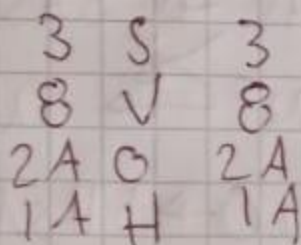 3 S 3
8 V 8
2A O 2A
1A H 1A